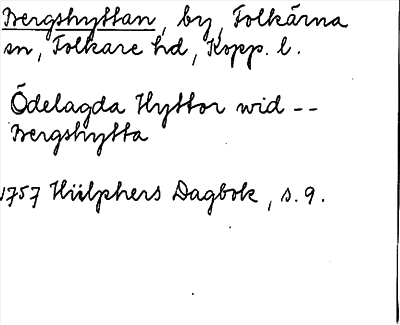 Bergshyttan, by, Folkärna
sn, Folkare hd, Kopp. l.
Ödelagda Hyttor wid --
Bergshytta
1757 Hülphers Dagbok, s. 9.